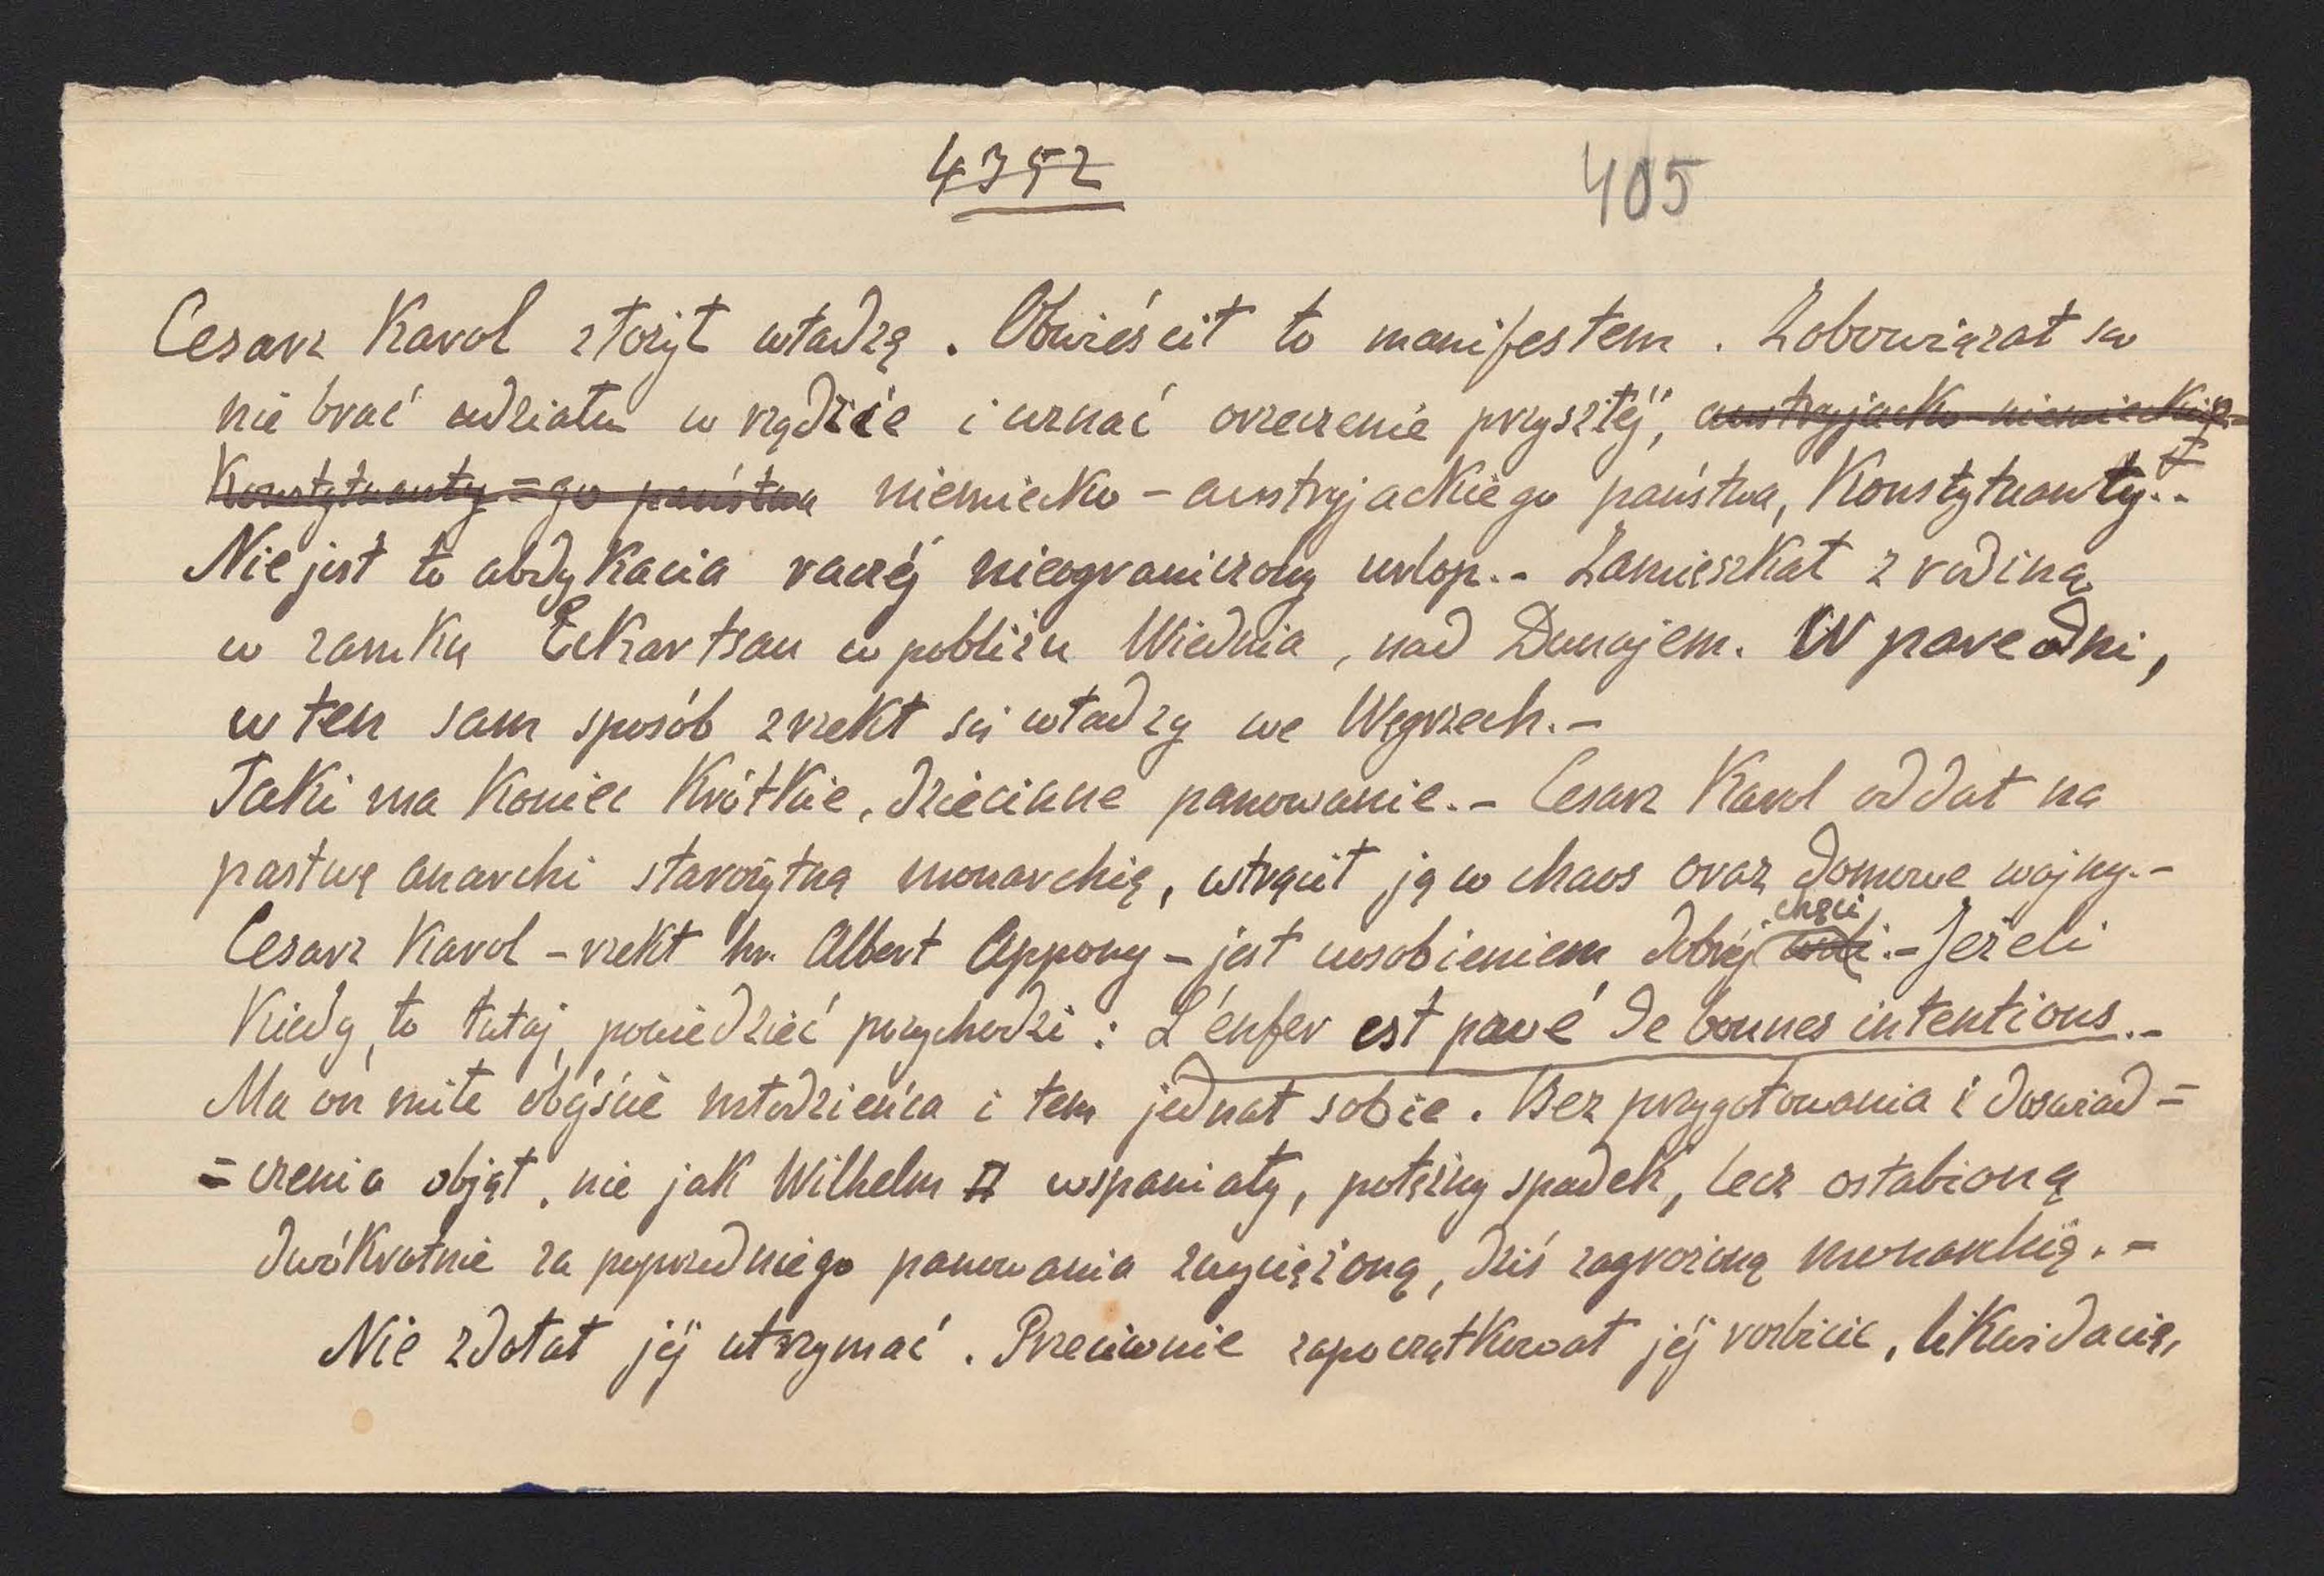 4352 405
Cesarz Karol złożył władzę. Obwieścił to manifestem. Zobowiązał się
nie brać udziału w rządzie i uznać orzeczenie przyszłéj, austryjacko-niemieckie=
Konstytuanty =go państwa niemiecko-austryjackiego państwa, Konstytuanty.-
Nie jest to abdykacia raczéj nieograniczony urlop.- Zamieszkał z rodziną
w zamku Eckartsau w pobliżu Wiednia, nad Dunajem. W pare dni,
w ten sam sposób zrzekł się władzy we Węgrzech.-
Taki ma koniec krótkie, dziecinne panowanie.- Cesarz Karol oddał na
pastwę anarchi starożytną monarchię, wtrącił ją w chaos oraz domowe wojny.-
Cesarz Karol - rzekł hr. Albert Appony - jest uosobieniem dobréj woli chęci.- Jeżeli
kiedy, to tutaj, powiedzieć przychodzi: L'énfer est pavé de bonnes intentions.-
Ma on miłe obéjście młodzieńca i tem jednał sobie. Bez przygotowania i doswiad=
=czenia objął, nie jak Wilhelm II wspaniały, potężny spadek, lecz osłabioną
dwókrotnie za poprzedniego panowania zwyciężoną, dziś zagrożoną monarchię.-
Nie zdołał jéj utrzymać. Przeciwnie zapoczątkował jéj rozbicie, likwidacię,